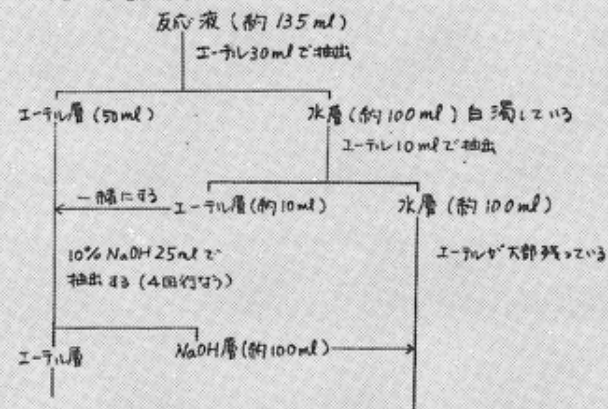 反応液(約135ml)
エーテル30mlで抽出
エーテル層(50ml)
水層(約100ml)白濁している
エーテル10mlで抽出
一緒にする
エーテル層(約10ml)
水層(約100ml)
10% NaOH 25mlで
抽出する(4回行なう)
エーテルが大部残っている
エーテル層
NaOH層(約100ml)